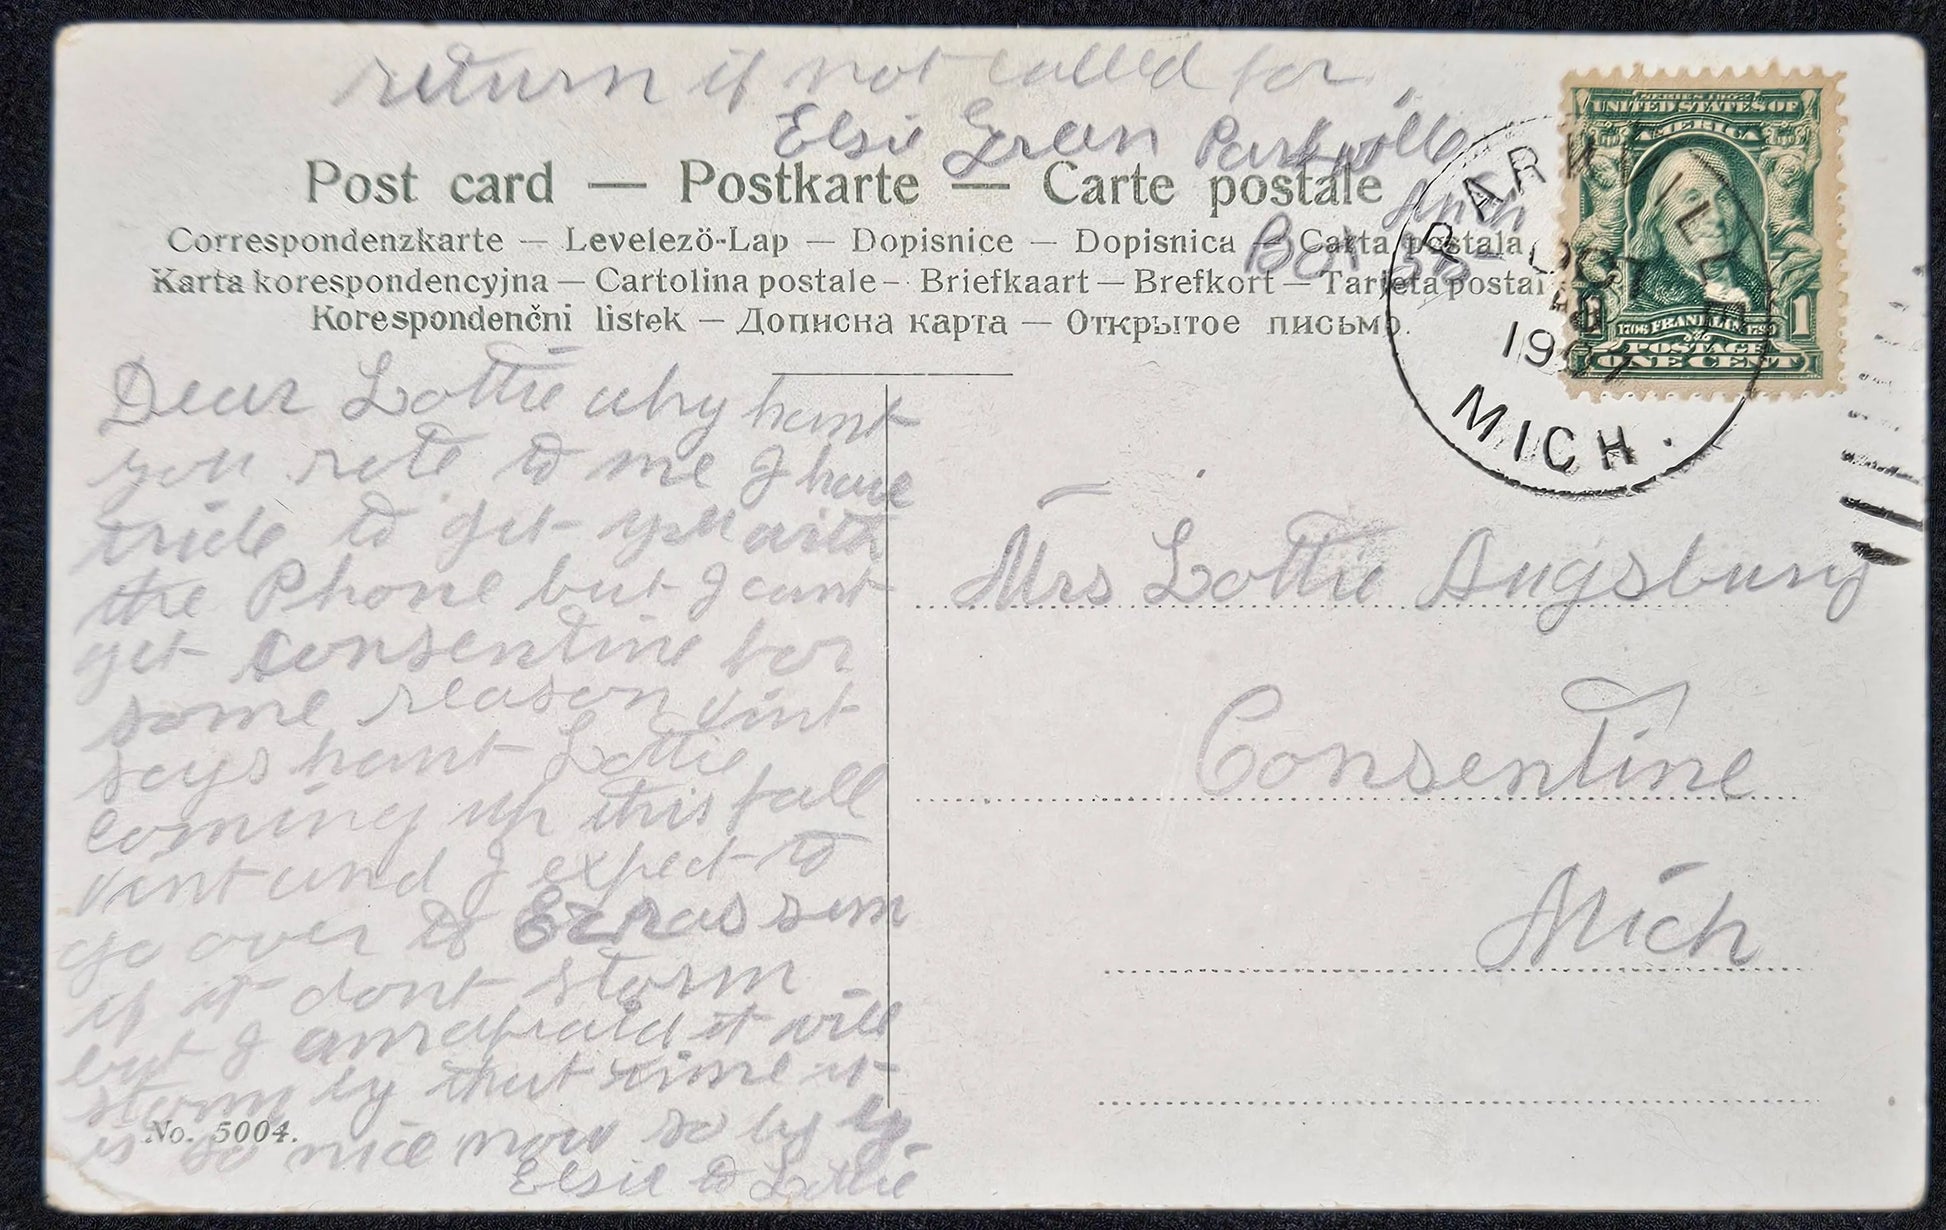 return if not called for
Elsie Gran Parkville
Mich
Box 35
Post card — Postkarte — Carte postale
Correspondenzkarte — Levelező-Lap — Dopisnice — Dopisnica — Carta postala
Karta korespondencyjna — Cartolina postale — Briefkaart — Brefkort — Tarjeta postal
Korespondenční listek — Дописна карта — Открытое письмо.
SERIES 1902
UNITED STATES OF
AMERICA
1706 FRANKLIN 1790
1 1
POSTAGE
ONE CENT
PARKVILLE
OCT
1907
MICH.
Dear Lottie why hant
you rote to me I have
tride to get you with
the Phone but I cant
get Consentine for
some reason vint
says hant Lottie
coming up this fall
vint and I expect to
go over to Ezras sun
if it dont storm
but I am afraid it will
storm by that time it
is so nice now so by by
Elsie to Lottie
No. 5004.
Mrs Lottie Augsbury
Consentine
Mich